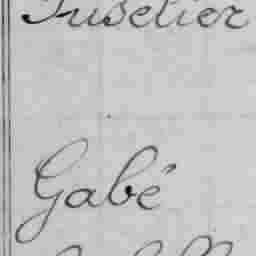 Fuselier
Gabé